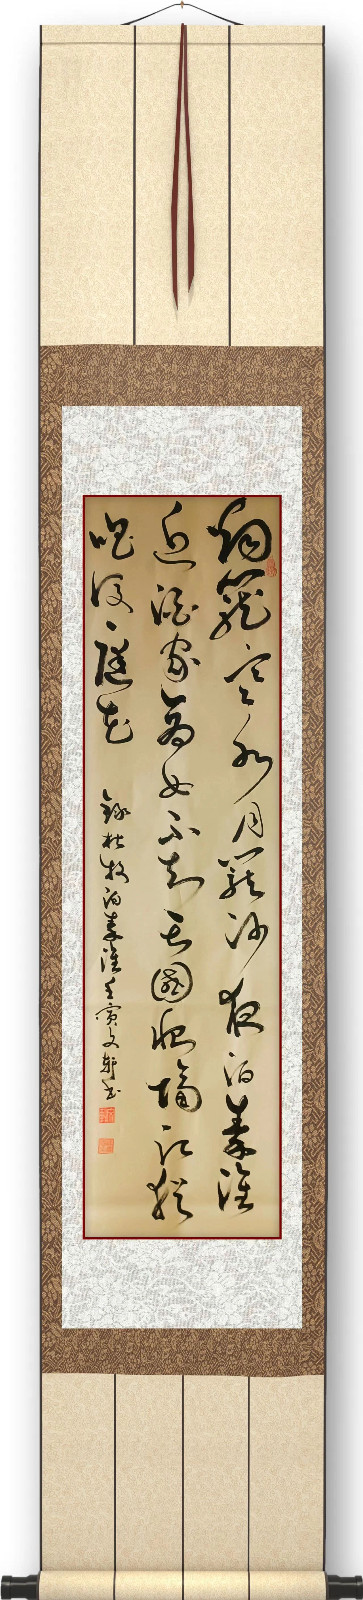 烟籠寒水月籠沙夜泊秦淮
近酒家商女不知亡國恨隔江猶
唱後庭花
錄杜牧泊秦淮壬寅文軒書